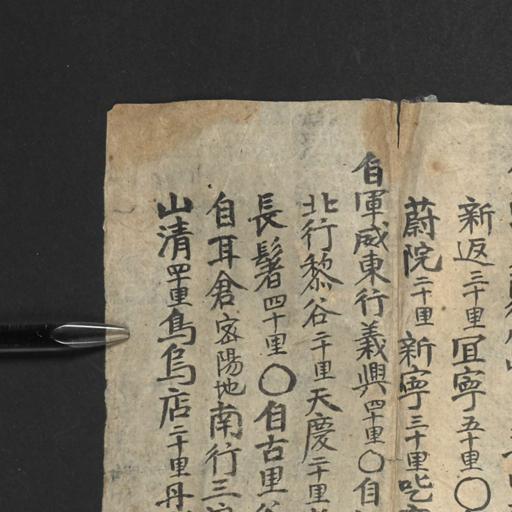 新返三十里冝寧五十里〇
蔚院二十里新寧三十里
自軍威東行義興四十里〇自
北行黎谷二十里天慶二十里
長鬐四十里〇自古里
自耳倉密陽地南行三
山清四十里烏烏店二十里丹